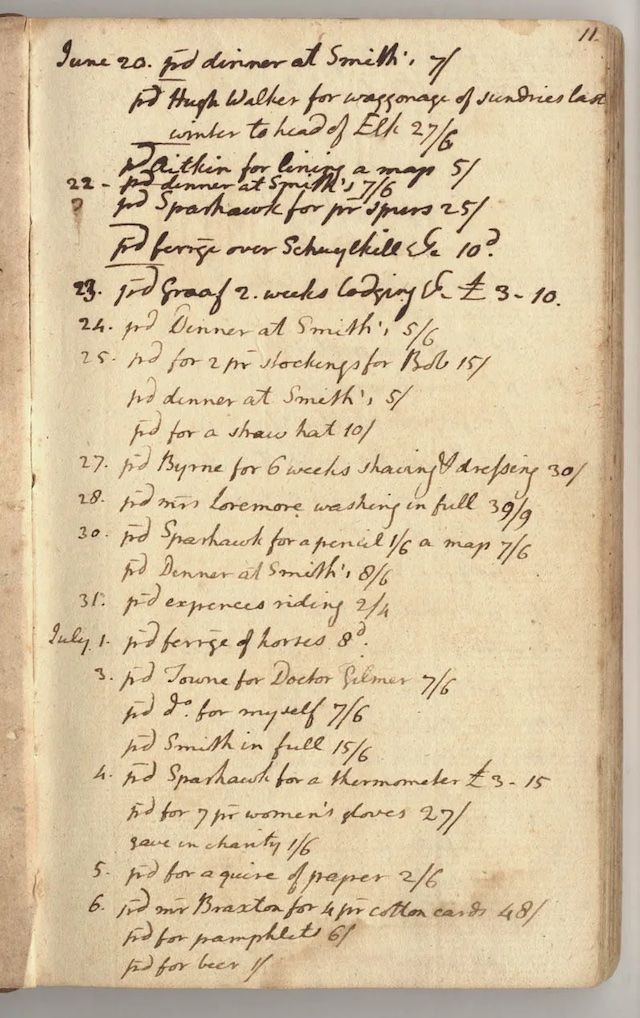 11.
June 20. pd dinner at Smith's 7/
pd Hugh Walker for waggonage of sundries last
winter to head of Elk 27/6
pd Aitkin for lining a map 5/
22 - pd dinner at Smith's 7/6
pd Sparhawk for pr spurs 25/
pd ferrge over Schuylkill &c 10d.
23. pd Graaf 2. weeks lodging &c £3-10.
24. pd Dinner at Smith's 5/6
25. pd for 2 pr stockings for Bob 15/
pd dinner at Smith's 5/
pd for a straw hat 10/
27. pd Byrne for 6 weeks shaving & dressing 30/
28. pd mrs Loremore washing in full 39/9
30. pd Sparhawk for a pencil 1/6 a map 7/6
pd Dinner at Smith's 8/6
31. pd expences riding 2/4
July 1. pd ferrge of horses 8d.
3. pd Towne for Doctor Gilmer 7/6
pd do. for myself 7/6
pd Smith in full 15/6
4. pd Sparhawk for a thermometer £3-15
pd for 7 pr women's gloves 27/
gave in charity 1/6
5. pd for a quire of paper 2/6
6. pd mr Braxton for 4 pr cotton cards 48/
pd for pamphlets 6/
pd for beer 1/